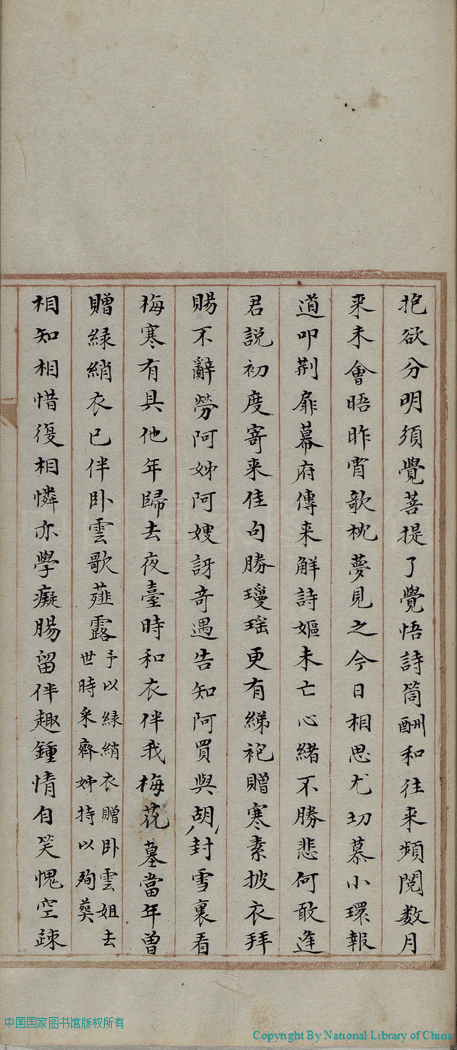 抱欲分明須覺菩提了覺悟詩筒酬和往来頻閱数月
来未會晤昨宵欹枕夢見之今日相思尤切慕小環報
道叩荆扉幕府傳来解詩嫗未亡心緒不勝悲何敢逢
君說初度寄来佳句勝瓊瑶更有綈袍贈寒素披衣拜
賜不辭勞阿姊阿嫂訝竒遇告知阿買與胡八封雪裏看
梅寒有具他年歸去夜臺時和衣伴我梅花墓當年曾
贈緑綃衣已伴卧雲歌薤露予以緑綃衣贈卧雲姐去
世時采齊姊持以殉葬
相知相惜復相憐亦學癡腸留伴趣鍾情自笑愧空疎
中国国家图书馆版权所有
Copyright By National Library of China